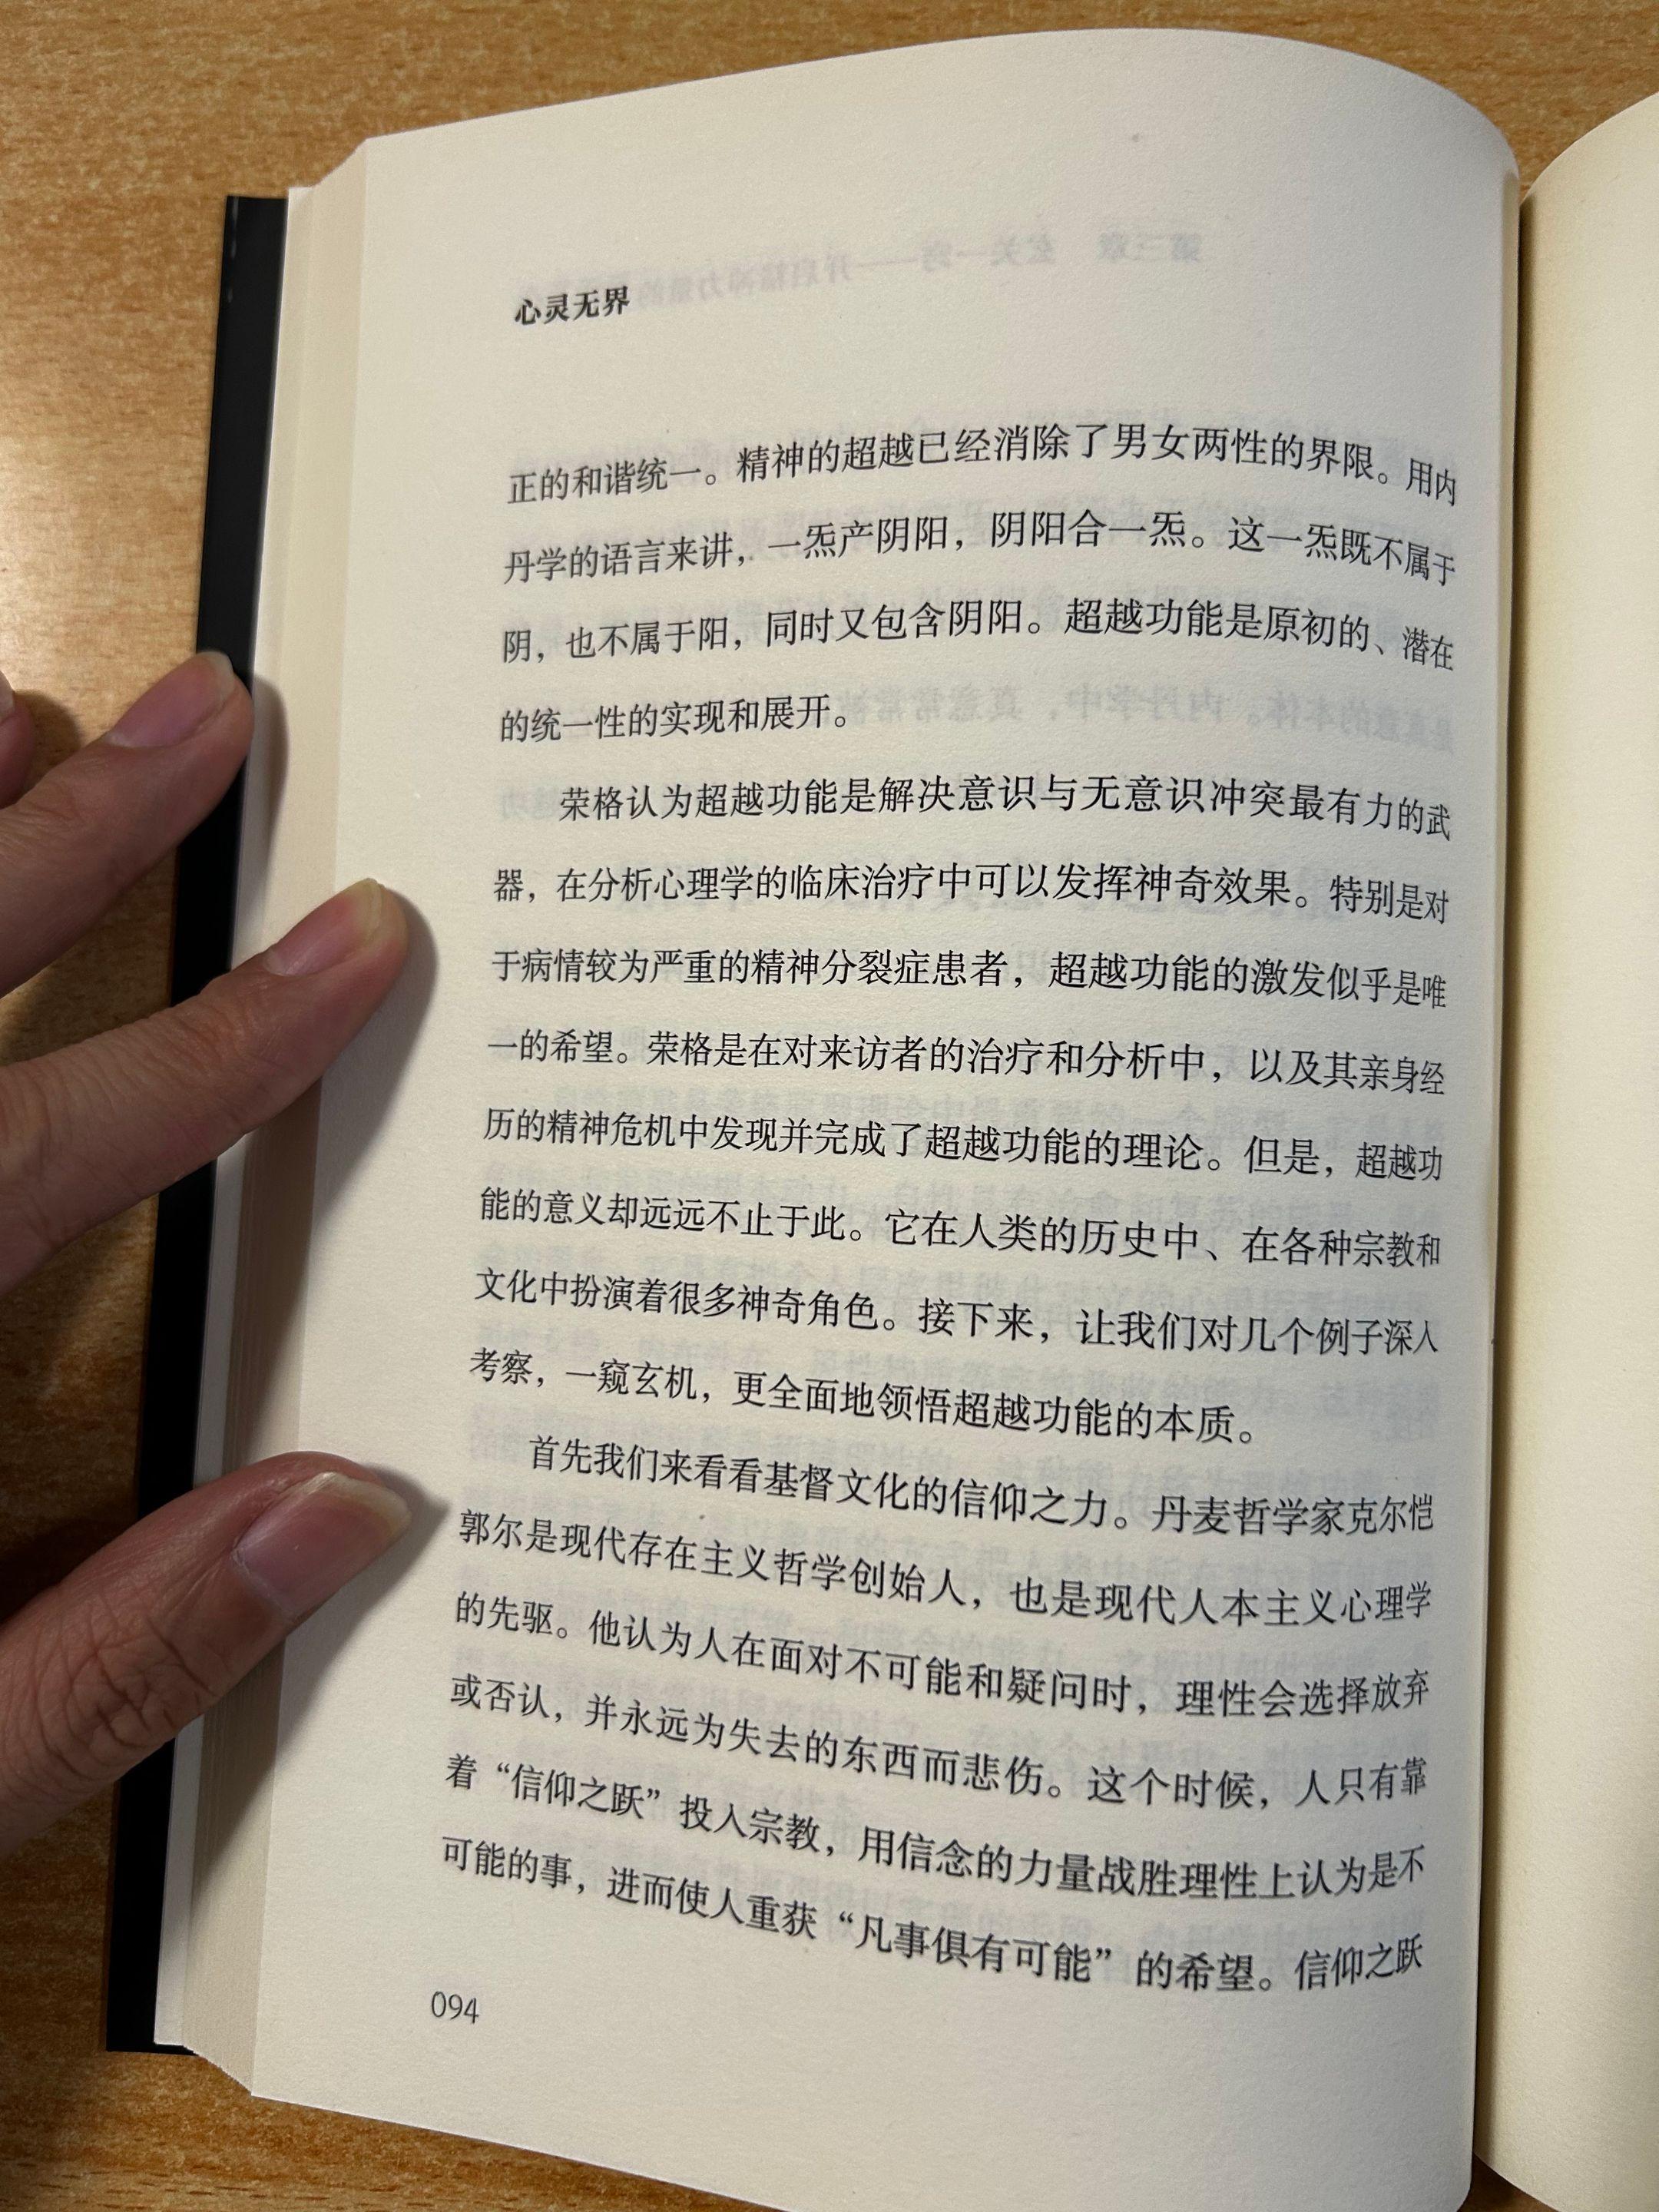 心灵无界
正的和谐统一。精神的超越已经消除了男女两性的界限。用内
丹学的语言来讲，一炁产阴阳，阴阳合一炁。这一炁既不属于
阴，也不属于阳，同时又包含阴阳。超越功能是原初的、潜在
的统一性的实现和展开。
荣格认为超越功能是解决意识与无意识冲突最有力的武
器，在分析心理学的临床治疗中可以发挥神奇效果。特别是对
于病情较为严重的精神分裂症患者，超越功能的激发似乎是唯
一的希望。荣格是在对来访者的治疗和分析中，以及其亲身经
历的精神危机中发现并完成了超越功能的理论。但是，超越功
能的意义却远远不止于此。它在人类的历史中、在各种宗教和
文化中扮演着很多神奇角色。接下来，让我们对几个例子深入
考察，一窥玄机，更全面地领悟超越功能的本质。
首先我们来看看基督文化的信仰之力。丹麦哲学家克尔恺
郭尔是现代存在主义哲学创始人，也是现代人本主义心理学
的先驱。他认为人在面对不可能和疑问时，理性会选择放弃
或否认，并永远为失去的东西而悲伤。这个时候，人只有靠
着“信仰之跃”投入宗教，用信念的力量战胜理性上认为是不
可能的事，进而使人重获“凡事俱有可能”的希望。信仰之跃
094